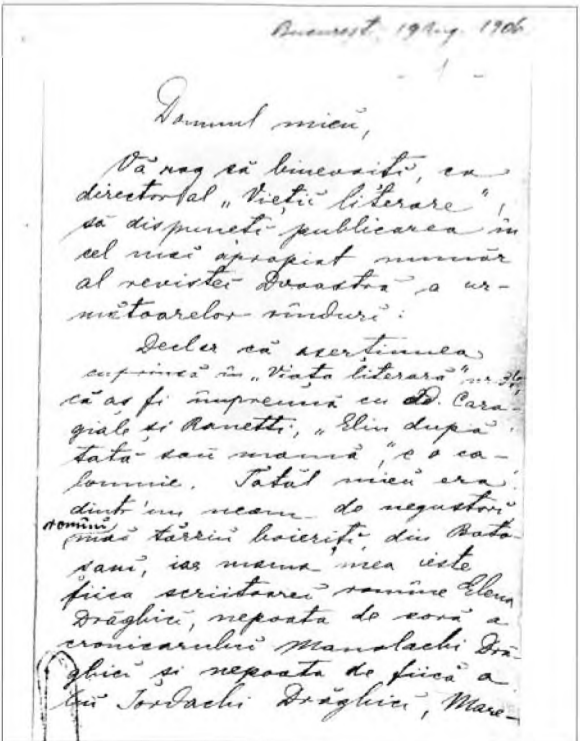 București, 19 Aug. 1906
- 1 -
Domnul mieu,
Vă rog să binevoiți, ca
director al „Vieții literare”,
să dispuneți publicarea în
cel mai apropiat număr
al revistei Dvoastră a ur-
mătoarelor rînduri:
Declar că aserțiunea
cuprinsă în „Viața literară” nr. 34,
că aș fi împreună cu dd. Cara-
giale și Ranetti, „Elin după
tată sau mamă”, e o ca-
lomnie. Tatăl mieu era
dintr'un neam de negustori
romîni,
mai tărziu boieriți, din Boto-
șani, iar mama mea ieste
fiica scriitoarei romîne Elena
Drăghici, nepoata de soră a
cronicarului Manolachi Dră-
ghici și nepoata de fiică a
lui Iordachi Drăghici, Mare-